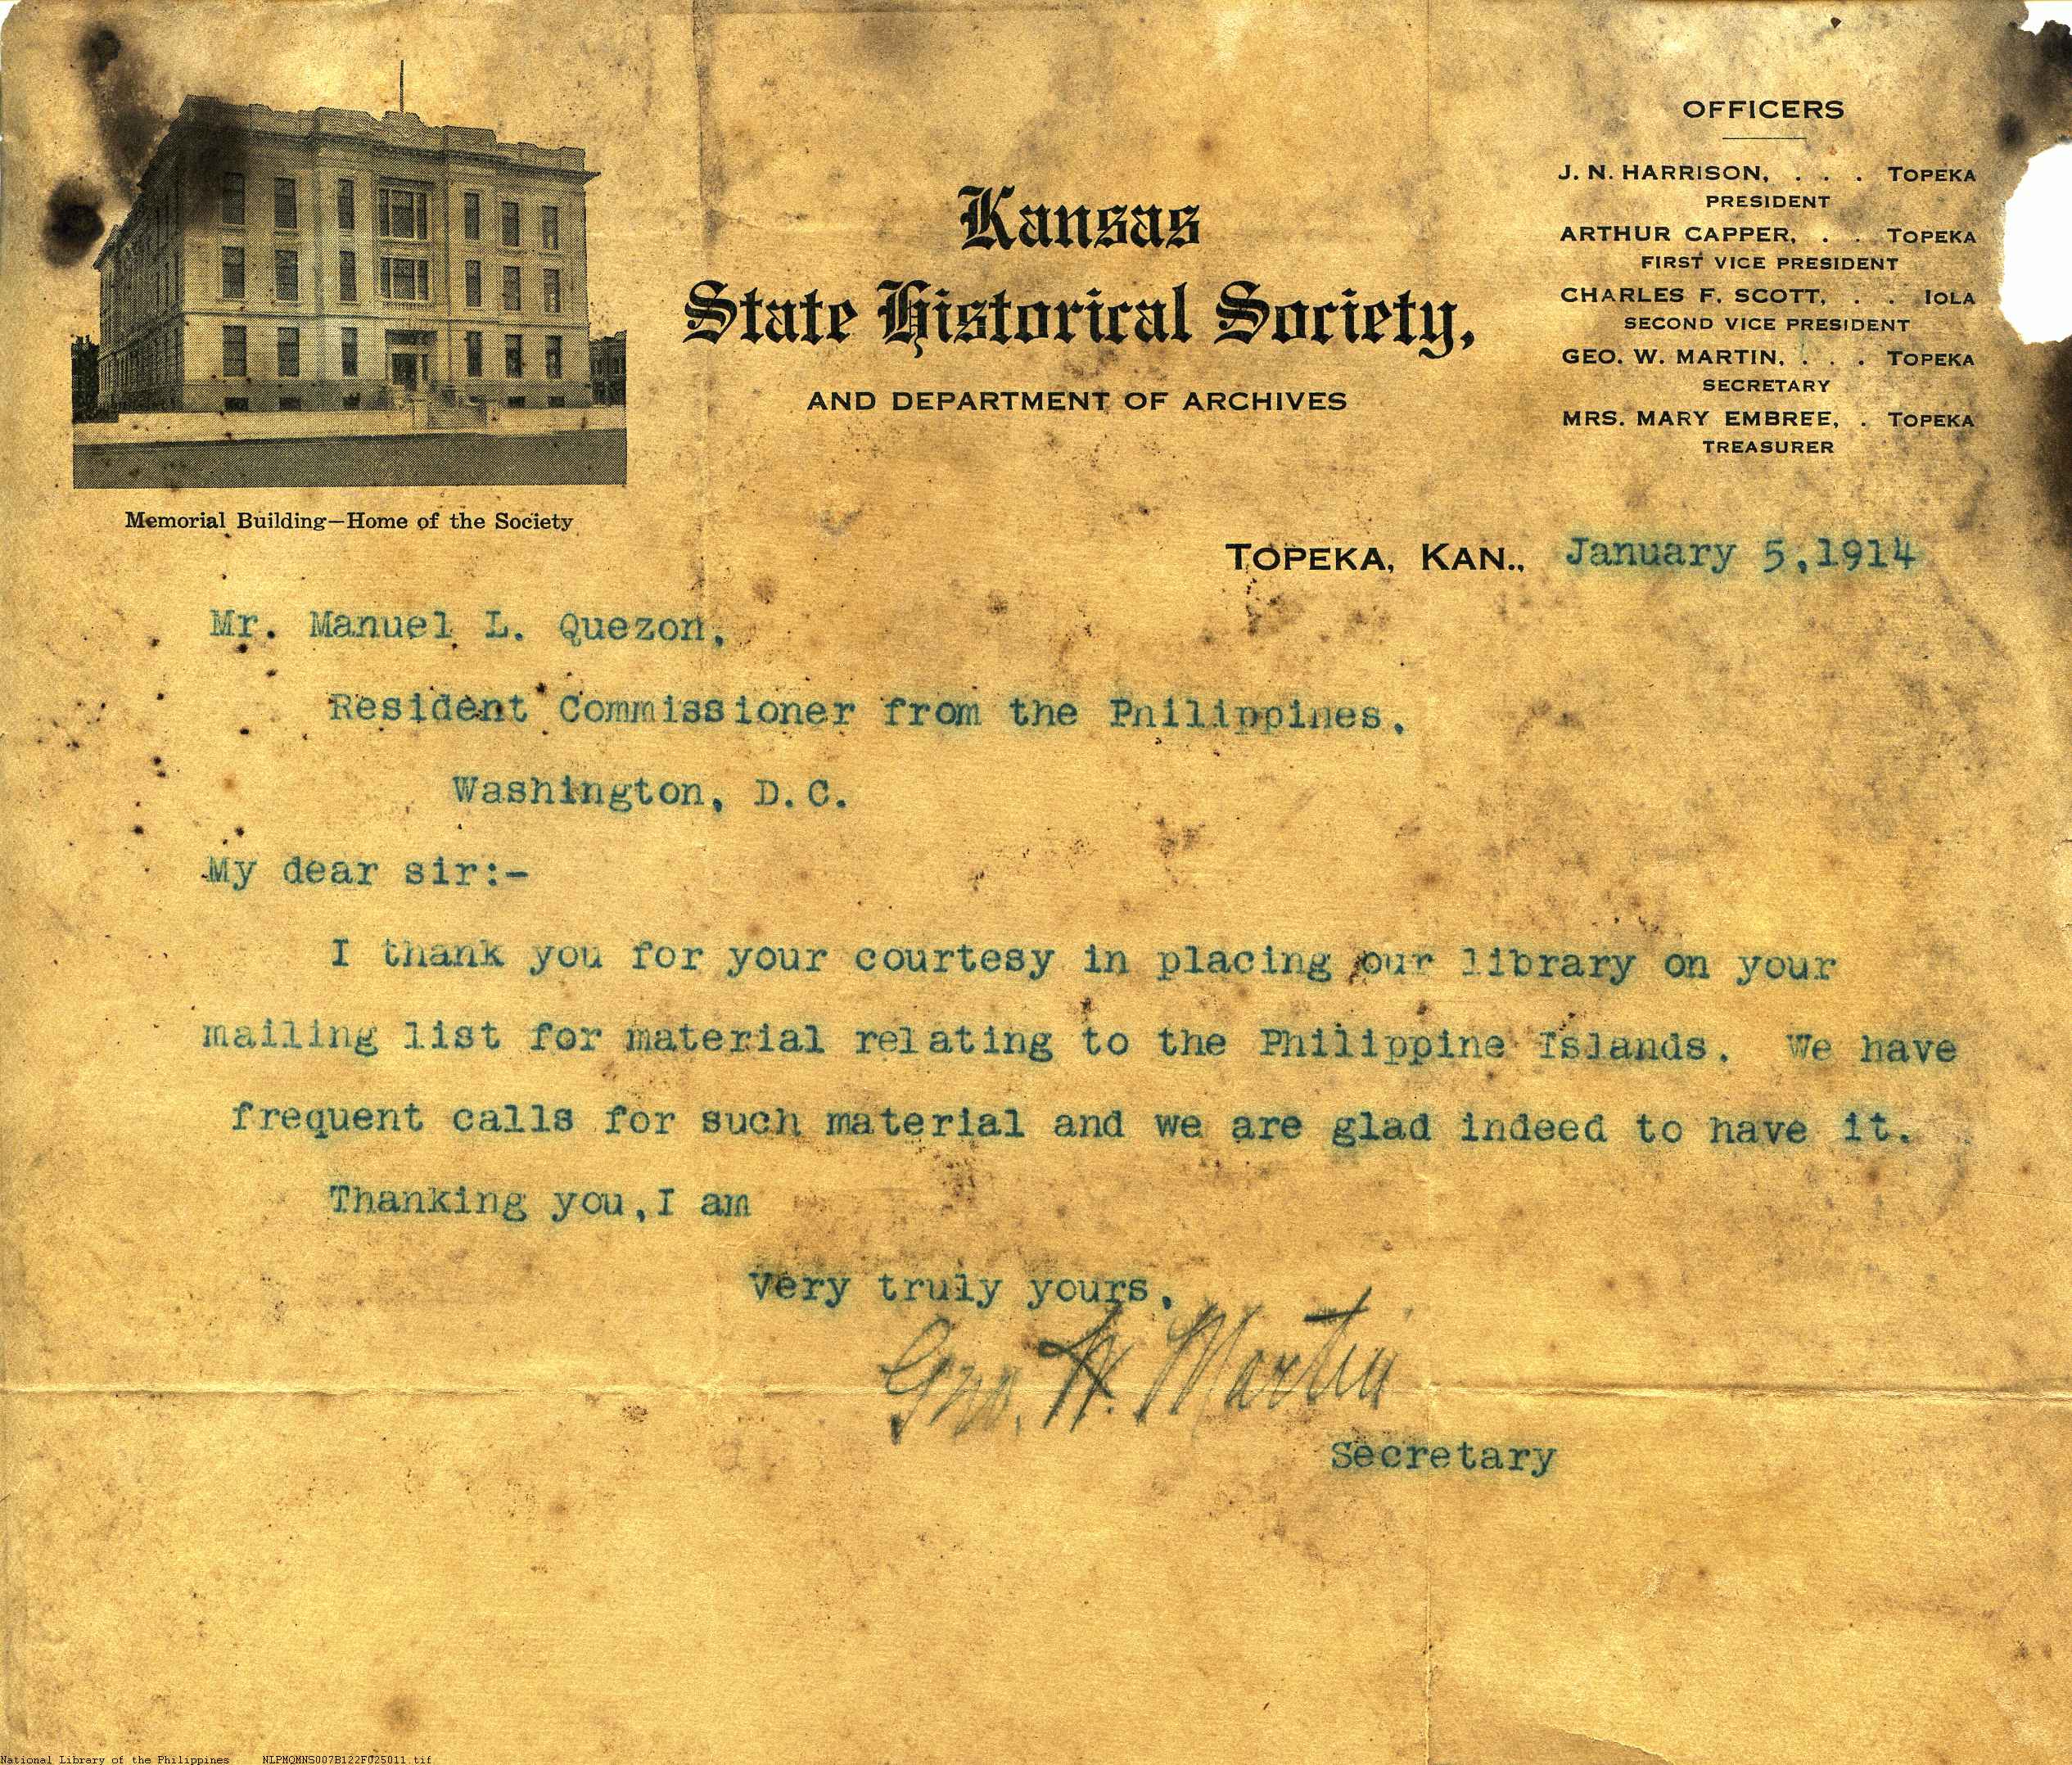 OFFICERS
J. N. HARRISON, . . . TOPEKA
PRESIDENT
ARTHUR CAPPER, . . TOPEKA
FIRST VICE PRESIDENT
CHARLES F. SCOTT, . . IOLA
SECOND VICE PRESIDENT
GEO. W. MARTIN, . . . TOPEKA
SECRETARY
MRS. MARY EMBREE, . TOPEKA
TREASURER
Kansas
State Historical Society,
AND DEPARTMENT OF ARCHIVES
Memorial Building—Home of the Society
TOPEKA, KAN., January 5,1914
Mr. Manuel L. Quezon,
Resident Commissioner from the Philippines,
Washington, D.C.
My dear sir:-
I thank you for your courtesy in placing our library on your
mailing list for material relating to the Philippine Islands. We have
frequent calls for such material and we are glad indeed to have it.
Thanking you,I am
Very truly yours,
Geo. W. Martin
Secretary
National Library of the Philippines NLPMQMNS007B122F025011.tif